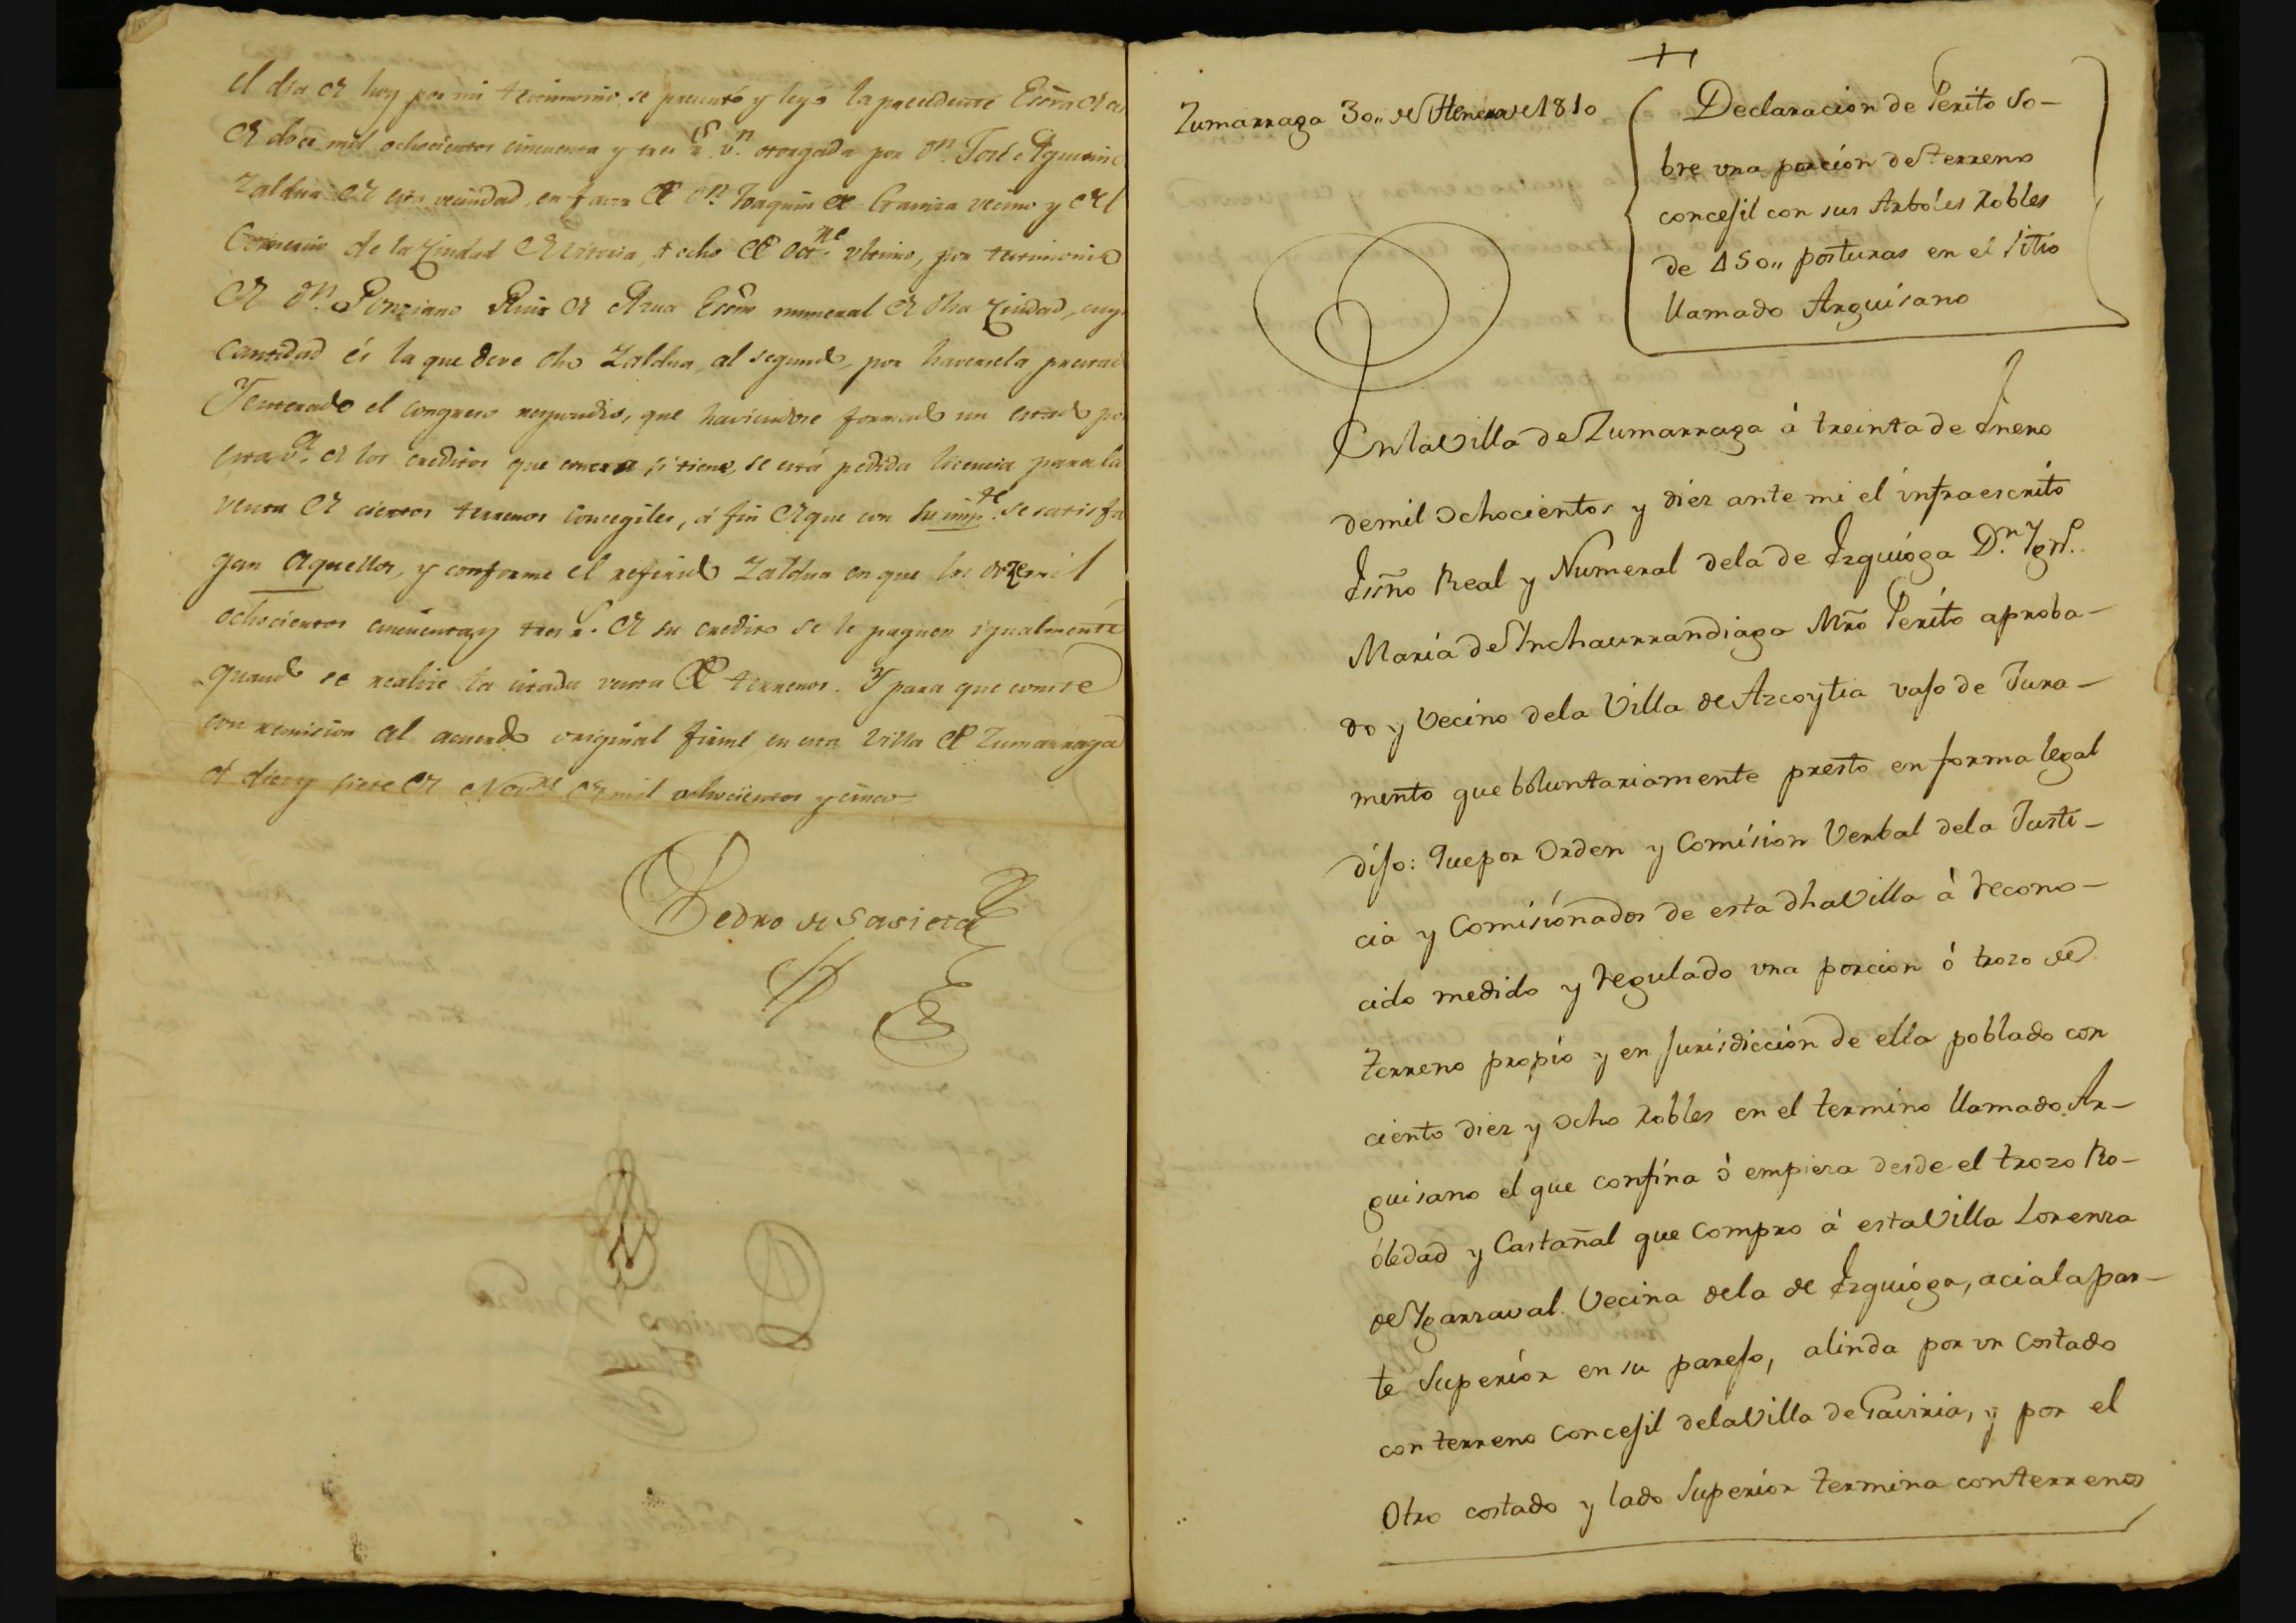 el dia de hoy por mi testimonio se presentó y leyó la precedente Essra de
de doce mil ochocientos cinquenta y tres rs. vn. otorgada por Dn. José Agustin
Zaldua de esta vecindad, en favor de Dn. Joaquin de vecino y del
Comercio de la Ciudad de Vitoria, ocho de Octre. ultimo, por testimonio
de Dn. Ponziano Ruiz de Azua Essno numeral de dha Ciudad, cuya
cantidad és la que deve dho Zaldua, al segundo, por haversela prestado
Y enterado el congreso respondió, que haviendose formado un estado por
esta Va. de los creditos que contra si tiene, se está pedida licencia para la
venta de ciertos terrenos concegiles, á fin de que con su impte. se satisfa
gan aquellos, y conforme el referido Zaldua en que los doze mil
ochocientos cinquenta y tres rs. de su credito se le paguen igualmente
quando se realize la citada venta de terrenos. Y para que conste
con remision al acuerdo original firmé en esta Villa de Zumarraga
á diez y siete de Novre de mil ochocientos y cinco
Pedro de Sasieta
Zumarraga 30,, de Henero de 1810
Declaracion de Perito so-
bre una porción de terreno
concejil con sus Arboles Robles
de 450,, posturas en el Sitio
llamado Arguisano
En la Villa de Zumarraga á treinta de Enero
de mil ochocientos y diez ante mi el infraescrito
Essño Real y Numeral de la de Ezquioga Dn. Ygno.
Maria de Ynchaurrandiaga Mro Perito aproba-
do y Vecino de la Villa de Azcoytia vajo de Jura-
mento que boluntariamente presto en forma legal
dijo: Que por Orden y Comision Verbal de la Justi-
cia y Comisionados de esta dha Villa à recono-
cido medido y regulado una porcion ó trozo de
terreno propio y en jurisdiccion de ella poblado con
ciento diez y ocho Robles en el termino llamado Ar-
guisano el que confina ó empieza desde el trozo Ro-
óledad y Castañal que compro á esta Villa Lorenza
de Ygarzaval Vecina de la de Ezquioga, acia la par-
te Superior en su parejo, alinda por un costado
con terreno Concejil de la Villa de Gaviria, y por el
Otro costado y lado Superior termina con terrenos